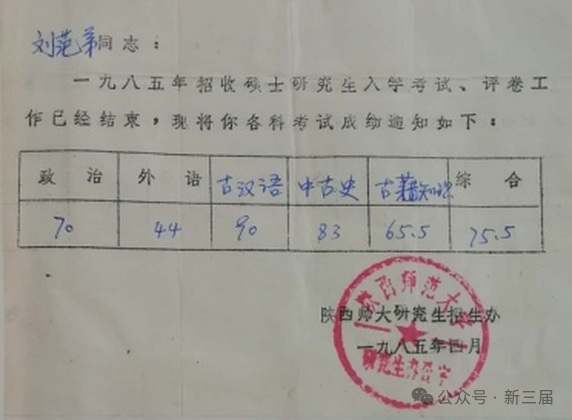 刘范弟同志：
一九八五年招收硕士研究生入学考试、评卷工
作已经结束，现将你各科考试成绩通知如下：
政治 外语 古汉语 中古史 古籍知识 综合
70 44 90 83 65.5 75.5
陕西师范大学
陕西师大研究生招生办
一九八五年四月
研究生办公室
公众号·新三届